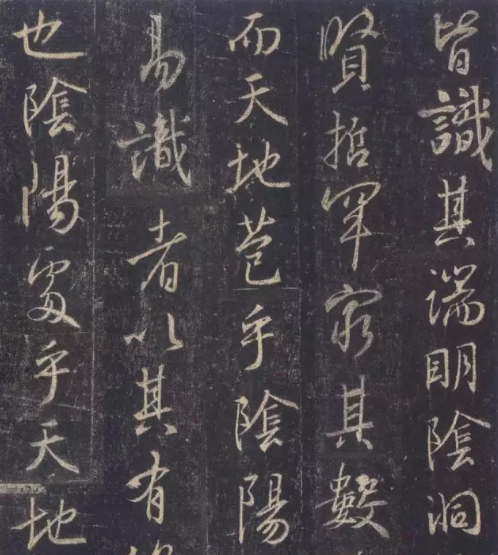 皆識其端明陰洞
賢哲罕窮其數
而天地苞乎陰陽
易識者以其有
也陰陽處乎天地